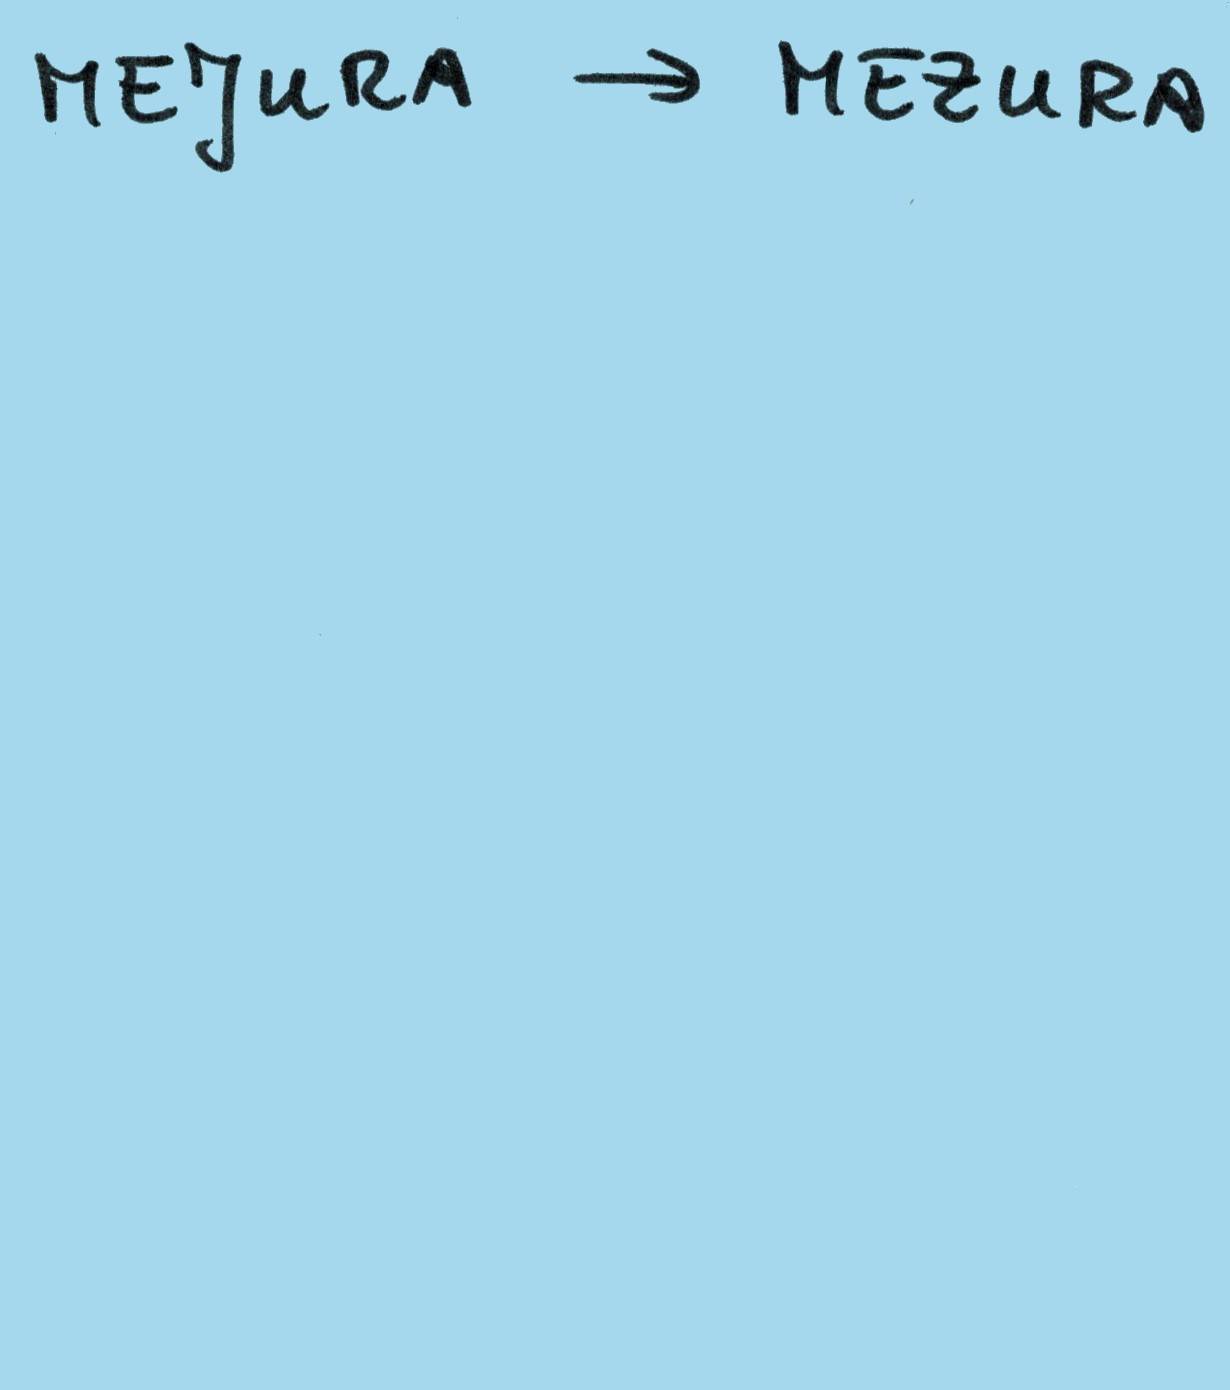 MEJURA → MEZURA